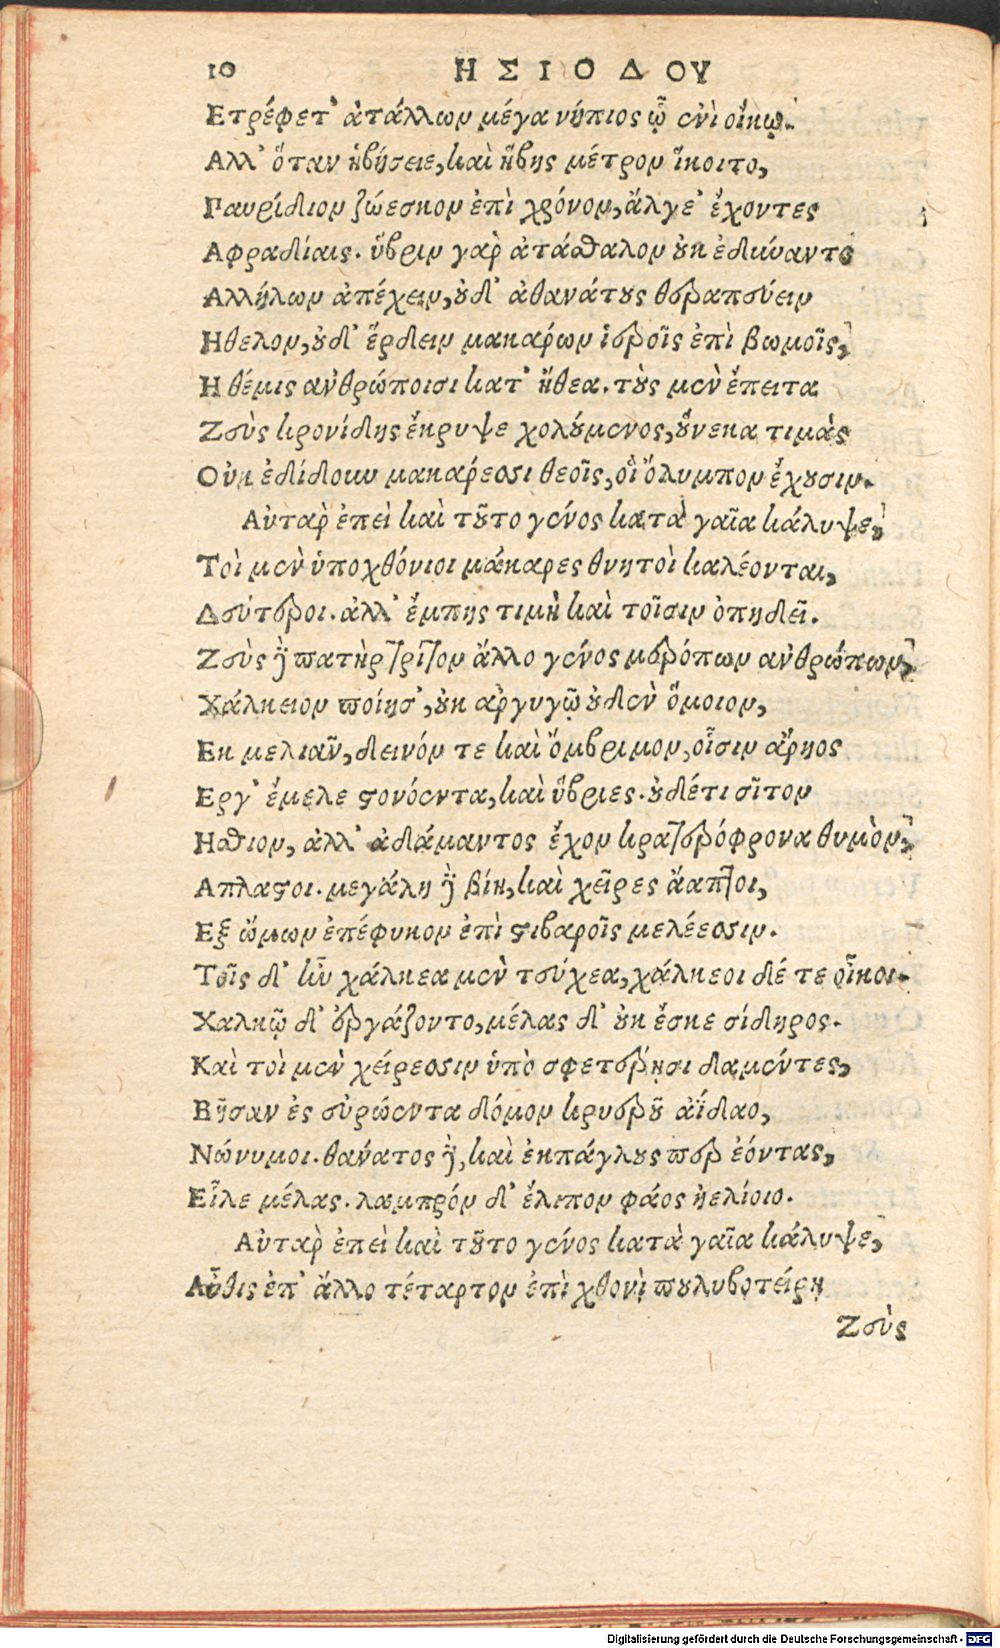 10 ΗΣΙΟΔΟΥ
Ετρέφετ' ἀτάλλων μέγα νήπιος ᾧ ἐνὶ οἴκῳ.
Αλλ' ὅταν ἡβήσειε, καὶ ἥβης μέτρον ἵκοιτο,
Παυρίδιον ζώεσκον ἐπὶ χρόνον, ἄλγε' ἔχοντες
Αφραδίαις. ὕβριν γὰρ ἀτάσθαλον οὐκ ἐδύναντο
Αλλήλων ἀπέχειν, οὐδ' ἀθανάτους θεραπεύειν
Ηθελον, οὐδ' ἔρδειν μακάρων ἱεροῖς ἐπὶ βωμοῖς,
Η θέμις ἀνθρώποισι κατ' ἤθεα. τοὺς μὲν ἔπειτα
Ζεὺς κρονίδης ἔκρυψε χολούμενος, οὕνεκα τιμὰς
Οὐκ ἐδίδουν μακάρεσσι θεοῖς, οἳ ὄλυμπον ἔχουσιν.
Αὐτὰρ ἐπεὶ καὶ τοῦτο γένος κατὰ γαῖα κάλυψε,
Τοὶ μὲν ὑποχθόνιοι μάκαρες θνητοὶ καλέονται,
Δεύτεροι. ἀλλ' ἔμπης τιμὴ καὶ τοῖσιν ὀπηδεῖ.
Ζεὺς δὲ πατὴρ τρίτον ἄλλο γένος μερόπων ἀνθρώπων,
Χάλκειον ποίησ', οὐκ ἀργυρῷ οὐδὲν ὅμοιον,
Εκ μελιᾶν, δεινόν τε καὶ ὄμβριμον, οἷσιν ἄρηος
Εργ' ἔμελε στονόεντα, καὶ ὕβριες. οὐδέ τι σῖτον
Ησθιον, ἀλλ' ἀδάμαντος ἔχον κρατερόφρονα θυμὸν,
Απλαστοι. μεγάλη δὲ βίη, καὶ χεῖρες ἄαπτοι,
Εξ ὤμων ἐπέφυκον ἐπὶ στιβαροῖς μελέεσσιν.
Τοῖς δ' ἦν χάλκεα μὲν τεύχεα, χάλκεοι δέ τε οἶκοι.
Χαλκῷ δ' ἐργάζοντο, μέλας δ' οὐκ ἔσκε σίδηρος.
Καὶ τοὶ μὲν χείρεσσιν ὑπὸ σφετέρῃσι δαμέντες,
Βῆσαν ἐς εὐρώεντα δόμον κρυεροῦ ἀΐδαο,
Νώνυμοι. θάνατος δὲ, καὶ ἐκπάγλους περ ἐόντας,
Εἷλε μέλας. λαμπρόν δ' ἔλιπον φάος ἠελίοιο.
Αὐτὰρ ἐπεὶ καὶ τοῦτο γένος κατὰ γαῖα κάλυψε,
Αὖθις ἐπ' ἄλλο τέταρτον ἐπὶ χθονὶ πουλυβοτείρῃ
Ζεὺς
Digitalisierung gefördert durch die Deutsche Forschungsgemeinschaft - DFG